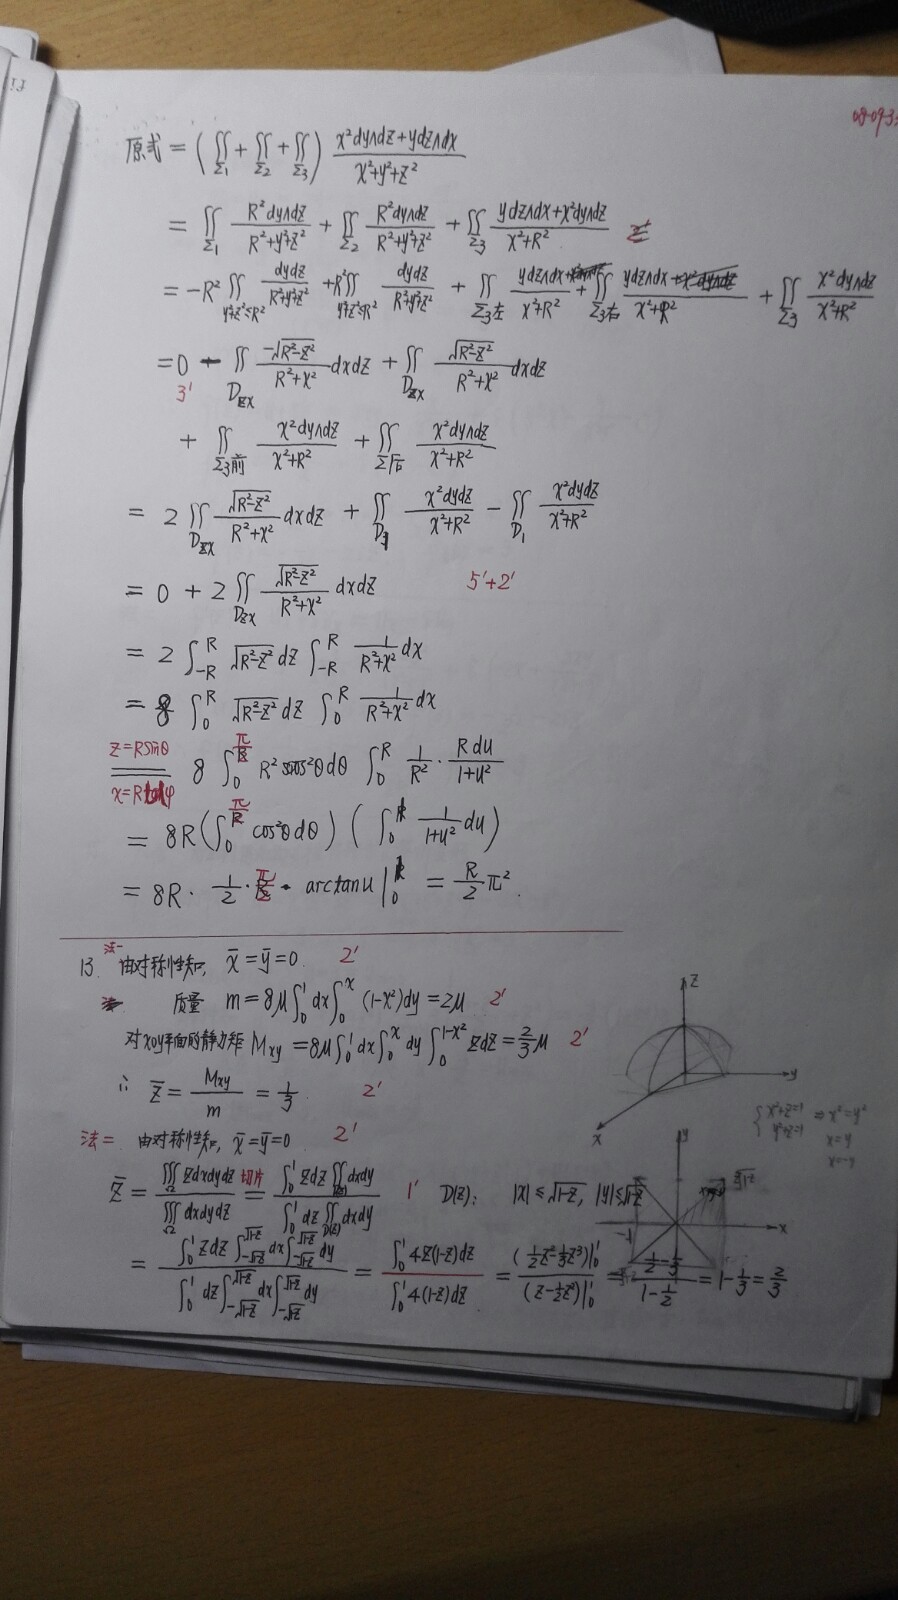 08-09-3:
原式 = (∬_Σ1 + ∬_Σ2 + ∬_Σ3) (x²dy∧dz + ydz∧dx)/(x²+y²+z²)
= ∬_Σ1 R²dy∧dz/(R²+y²+z²) + ∬_Σ2 R²dy∧dz/(R²+y²+z²) + ∬_Σ3 (ydz∧dx+x²dy∧dz)/(x²+R²)
= -R² ∬_{y²+z²≤R²} dydz/(R²+y²+z²) + R² ∬_{y²+z²≤R²} dydz/(R²+y²+z²) + ∬_Σ3左 ydz∧dx/(x²+R²) + ∬_Σ3右 ydz∧dx/(x²+R²) + ∬_Σ3 x²dy∧dz/(x²+R²)
= 0 - ∬_Dzx -√(R²-z²)/(R²+x²) dxdz + ∬_Dzx √(R²-z²)/(R²+x²) dxdz
3'
+ ∬_Σ3前 x²dy∧dz/(x²+R²) + ∬_Σ后 x²dy∧dz/(x²+R²)
= 2∬_Dzx √(R²-z²)/(R²+x²) dxdz + ∬_D1 x²dydz/(x²+R²) - ∬_D1 x²dydz/(x²+R²)
= 0 + 2∬_Dzx √(R²-z²)/(R²+x²) dxdz 5'+2'
= 2∫_{-R}^{R} √(R²-z²) dz ∫_{-R}^{R} 1/(R²+x²) dx
= 8 ∫_0^R √(R²-z²) dz ∫_0^R 1/(R²+x²) dx
z=Rsinθ x=Rtanφ 8 ∫_0^{π/2} R²cos²θdθ ∫_0^R 1/R² · Rdu/(1+u²)
= 8R(∫_0^{π/2} cos²θdθ)(∫_0^1 1/(1+u²) du)
= 8R · 1/2 · π/2 · arctanu|_0^1 = R/2 π².
13. 法一 由对称性知, x̄=ȳ=0. 2'
质量 m=8μ∫_0^1 dx∫_0^x (1-x²)dy=2μ 2'
对xoy平面的静力矩 Mxy=8μ∫_0^1 dx∫_0^x dy∫_0^{1-x²} zdz=2/3 μ 2'
∴ z̄ = Mxy/m = 1/3 2'
z
y
x
{x²+z=1 y²+z=1 ⇒ x²=y²
x=y
x=-y
法二 由对称性知, x̄=ȳ=0 2'
z̄ = ∭_Ω zdxdydz / ∭_Ω dxdydz 切片= ∫_0^1 zdz∬_D(z) dxdy / ∫_0^1 dz∬_D(z) dxdy 1' D(z): |x|≤√(1-z), |y|≤√(1-z)
y
x
-1
= ∫_0^1 zdz∫_{-√(1-z)}^{√(1-z)} dx∫_{-√(1-z)}^{√(1-z)} dy / ∫_0^1 dz∫_{-√(1-z)}^{√(1-z)} dx∫_{-√(1-z)}^{√(1-z)} dy = ∫_0^1 4z(1-z)dz / ∫_0^1 4(1-z)dz = (1/2 z²-1/3 z³)|_0^1 / (z-1/2 z²)|_0^1 = (1/2-1/3)/(1-1/2) = 1-1/3 = 2/3